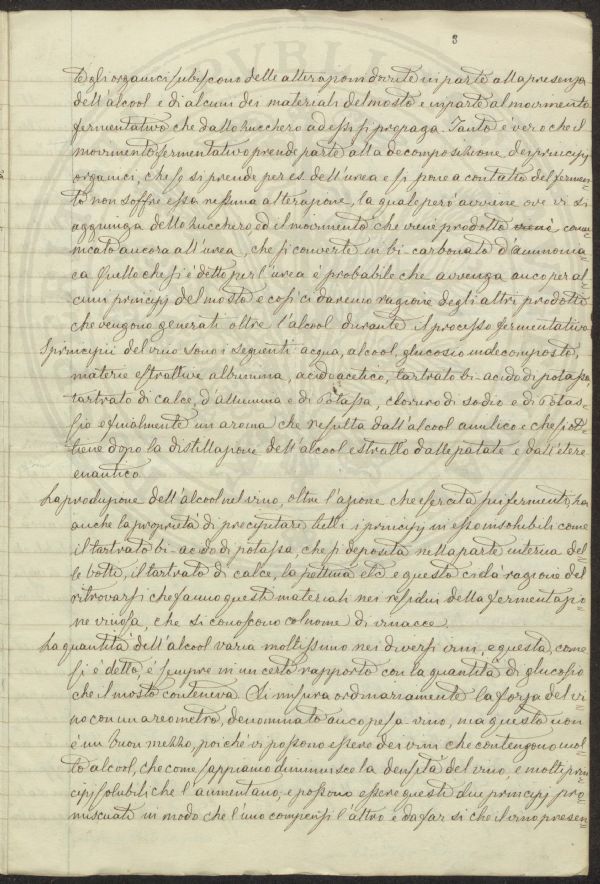 8
degli organici subiscono delle alterazioni dovute in parte alla presenza
dell'alcool e di alcuni dei materiali del mosto e in parte al movimento
fermentativo che dallo zucchero ad essi si propaga. Tanto è vero che il
movimento fermentativo prende parte alla decomposizione dei principj
organici, che se si prende per es. dell'urea e si pone a contatto del fermen=
to non soffre essa nessuna alterazione, la quale però avviene ove vi si
aggiunga dello zucchero, ed il movimento che viene prodotto comu=
nicato ancora all'urea, che si converte in bi-carbonato d'ammonia=
ca Quello che si è detto per l'urea è probabile che avvenga anco per al=
cuni principj del mosto e così ci daremo ragione degli altri prodotti
che vengono generati oltre l'alcool durante il processo fermentativo
I principii del vino sono i seguenti acqua, alcool, glucosio indecomposto,
materie estrattive albumina, acido acetico, tartrato bi-acido di potassa,
tartrato di calce, d'allumina e di Potassa, cloruro di sodio e di Potas=
sio e finalmente un aroma che resulta dall'alcool amilico e che si ot=
tiene dopo la distillazione dell'alcool estratto dalle patate e dall'etere
enantico.
La produzione dell'alcool nel vino, oltre l'azione che esercita sui fermenti, ha
anche la proprietà di precipitare tutti i principj in esso insolubili come
il tartrato bi-acido di potassa, che si deposita nella parte interna del=
le botti, il tartrato di calce, la pettina etc e questo ci dà ragione del
ritrovarsi che fanno questi materiali nei residui della fermentazio=
ne vinosa, che si conoscono col nome di vinacce.
La quantità dell'alcool varia moltissimo nei diversi vini, e questa, come
si è detto, è sempre in un certo rapporto con la quantità di glucosio
che il mosto conteneva. Si misura ordinariamente la forza del vi=
no con un areometro, denominato anco pesa-vino, ma questo non
è un buon mezzo, poiché vi possono essere dei vini che contengono mol=
to alcool, che come sappiamo diminuisce la densità del vino, e molti prin=
cipj solubili che l'aumentano, e possono essere questi due principj pro=
miscuati in modo che l'uno compensi l'altro e da far si che il vino presen=